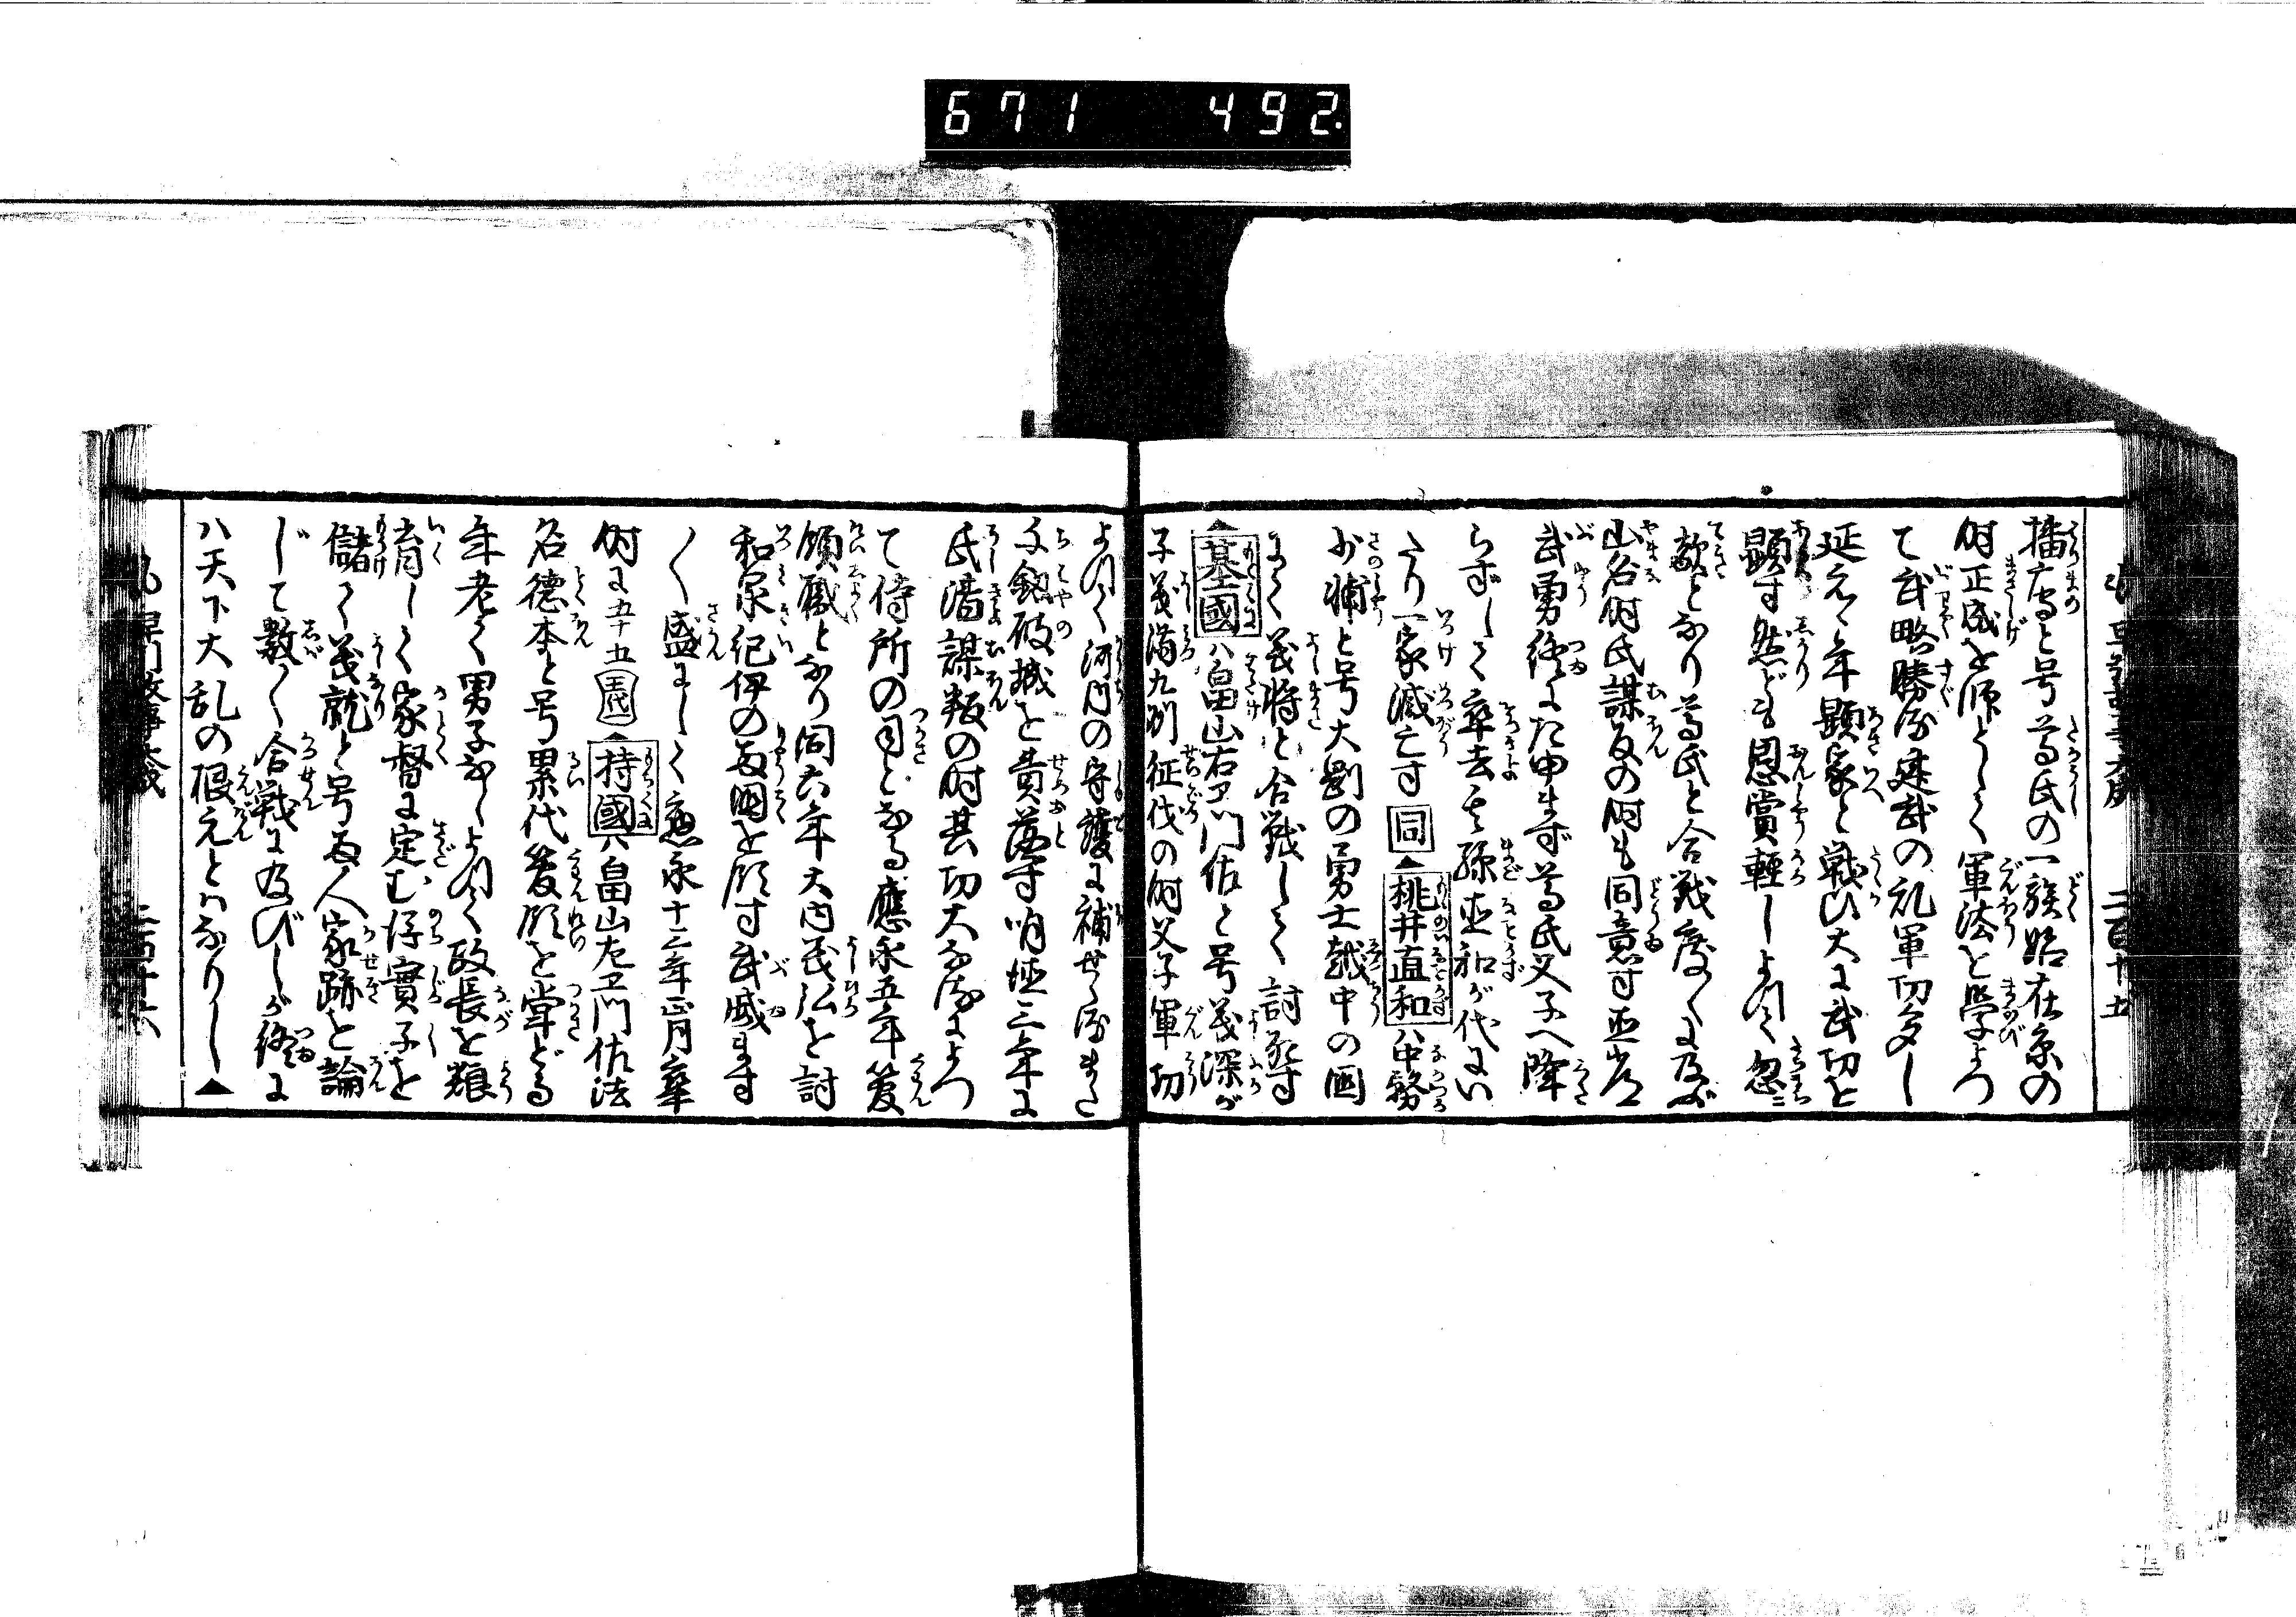 671 492.
播磨守と号尊氏の一族始在京の
時正成を師として軍法を学よつ
て武略勝る建武の乱軍功多し
延元々年顕家と戦ひ大に武功を
顕す然ども恩賞軽しよつて忽ニ
敵となり尊氏と合戦度々に及ぶ
山名時氏謀反の時も同意す直常
武勇終にた申まず尊氏父子へ降
らずして卒去す孫直和が代にい
たり一家滅亡す 同 桃井直和ハ中務
少輔と号大剛の勇士越中の国
にて義将と合戦して討死す
基國ハ畠山右衛門佐と号義深が
子義満九州征伐の時父子軍功
よつて河内の守護に補せらるまた
千釼破城を責落す明徳三年に
氏清謀叛の時其功大なるによつ
て侍所の司となる應永五年管
領職となり同六年大内義弘を討
和泉紀伊の両國を領す武威ます
〱盛にして應永十三年正月卒
時に五十五 持國ハ畠山左衛門佐法
名徳本と号累代管領を掌どる
年老て男子なしよつて政長を養
育して家督に定む後實子を
儲て義就と号両人家跡を論
じて数々合戦に及びしが終に
ハ天下大乱の根元とハなりし